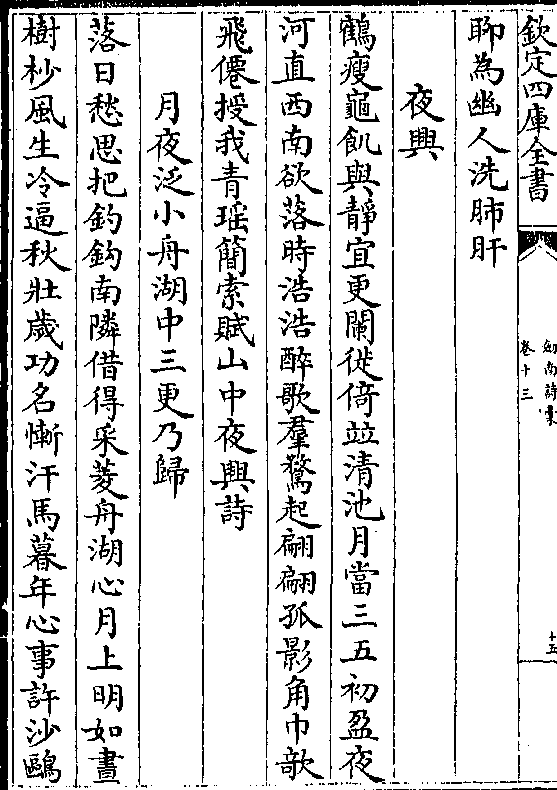 欽定四庫全書
劍南詩稾
卷十三
十五
聊為幽人洗肺肝
夜興
鶴瘦龜飢與靜宜更闌徙倚竝清池月當三五初盈夜
河直西南欲落時浩浩醉歌羣鶩起翩翩孤影角巾欹
飛僊授我青瑶簡索賦山中夜興詩
月夜泛小舟湖中三更乃歸
落日愁思把釣鈎南隣借得采菱舟湖心月上明如晝
樹杪風生冷逼秋壯歲功名慚汗馬暮年心事許沙鷗